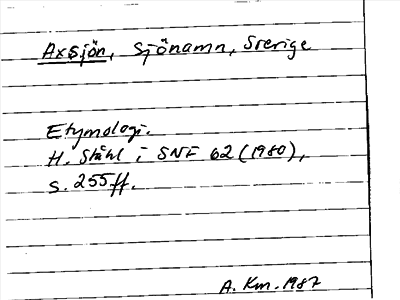 Axsjön, Sjönamn, Sverige
Etymologi.
H. Ståhl i SNF 62 (1980),
s. 255ff.
A. Km. 1987